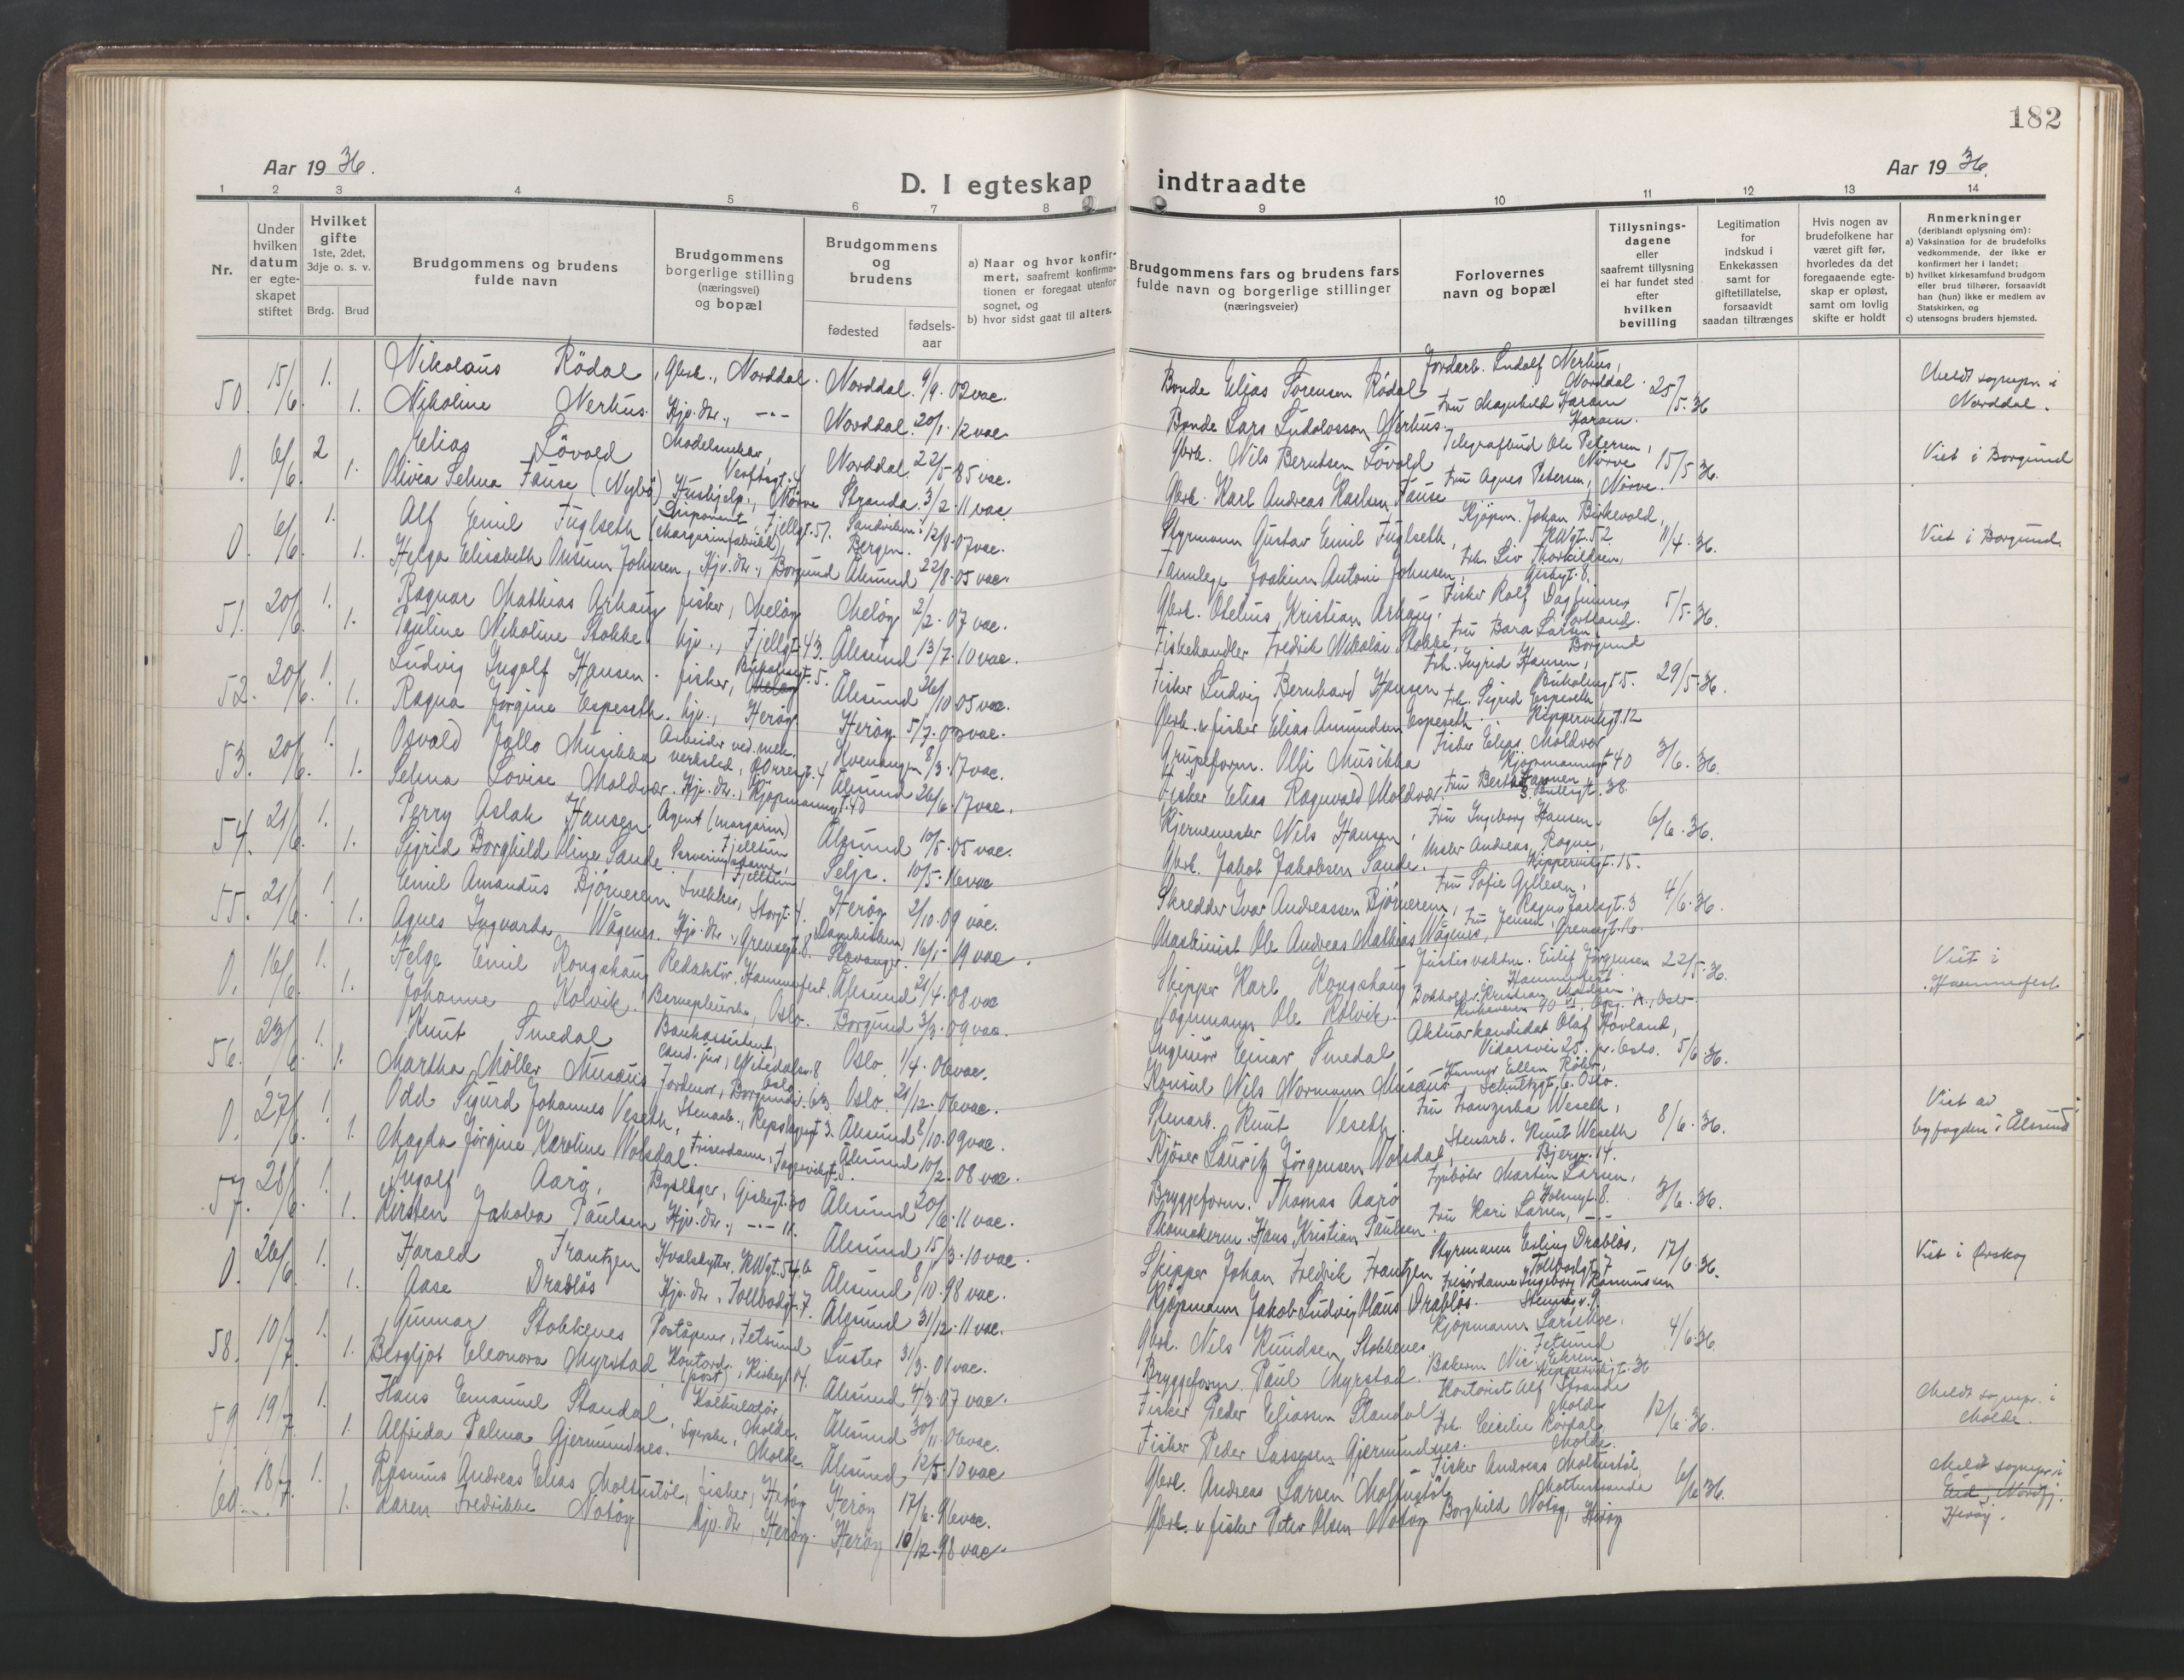 182
Aar 1936.
D. I egteskap indtraadte
Aar 1936.
1 2 3 4 5 6 7 8 9 10 11 12 13 14
Nr.
Under hvilken datum er egteskapet stiftet
Hvilket gifte 1ste, 2det, 3dje o. s. v.
Brdg. Brud
Brudgommens og brudens fulde navn
Brudgommens borgerlige stilling (næringsvei) og bopæl
Brudgommens og brudens
fødested fødsels-aar
a) Naar og hvor konfirmert, saafremt konfirmationen er foregaat utenfor sognet, og
b) hvor sidst gaat til alters.
Brudgommens fars og brudens fars fulde navn og borgerlige stillinger (næringsveier)
Forlovernes navn og bopæl
Tillysningsdagene eller saafremt tillysning ei har fundet sted efter hvilken bevilling
Legitimation for indskud i Enkekassen samt for giftetillatelse, forsaavidt saadan tiltrænges
Hvis nogen av brudefolkene har været gift før, hvorledes da det foregaaende egteskap er opløst, samt om lovlig skifte er holdt
Anmerkninger (deriblandt oplysning om):
a) Vaksination for de brudefolks vedkommende, der ikke er konfirmert her i landet;
b) hvilket kirkesamfund brudgom eller brud tilhører, forsaavidt han (hun) ikke er medlem av Statskirken, og
c) utensogns bruders hjemsted.
50. 15/6. 1. Nikolaus Rödal, Gbrk., Norddal. Norddal. 9/9. 02 vac. Bonde Elias Sorensen Rödal Jordarb. Ludolf Nerhus, Norddal. 25/5. 36 Meldt sognepr. i Norddal.
1. Nikoline Nerhus. Hjv. dtr., -"- Norddal. 20/1. 12 vac. Bonde Lars Ludolosson Nerhus. Fru Magnhild Haram Haram.
0. 6/6. 2 Elias Lövold Modelsnekker, Verftsgt. 4 Norddal. 22/5. 85 vac. Gbrk. Nils Berntsen Lövold Telegrafbud Ole Petersen, Nörve 15/5. 36. Viet i Borgund
1. Olivea Selma Fause (Nybö) Hushjelp, Nörve Stranda. 3/2. 11 vac. Gbrk. Karl Andreas Karlsen Fause Fru Agnes Petersen, Nörve.
0. 6/6. 1. Alf Emil Fuglseth (margarinfabrikk), Fjellgt. 51. Sandviken, Bergen. 12/8. 07 vac. Styrmann Gustav Emil Fuglseth, Kjöpm. Johan Birkevold, KWgt. 52 11/4. 36. Viet i Borgund.
1. Helga Elisabeth Johnsen, Hjv. dtr., Borgund Ålesund 22/8. 05 vac. Tannlege Joakim Antoni Johnsen, Frk. Liv Thorkildsen, 8.
51. 20/6. 1. Ragnar Mathias Arhaug fisker, Melöy Melöy 2/2. 07 vac. Gbrk. Otelius Kristian Arhaug. Fisker Rolf Dagfinnsen 5/5. 36.
1. Pauline Nikoline Stokke. hjv., Fjellgt. 43. Ålesund 13/7. 10 vac. Fiskehandler Fredrik Nikolai Stokke, Fru Bara Larsen Borgund
52. 20/6. 1. Ludvig Ingolf Hansen. fisker, Buholmgt. 5. Ålesund 26/10 05 vac. Fisker Ludvig Bernhard Hansen Frk. Ingrid Hansen, Buholmgt. 5. 29/5. 36.
1. Ragna Jörgine Espeseth. hjv., Heröy Heröy. 5/7. 03 vac. Gbrk. & fisker Elias Amundsen Espeseth. Frk. Sigrid Espeseth Kippervikgt. 12
53. 20/6. 1. Osvald Jallo Musikka Arbeider ved mek. verksted, Ö. Borregt. 4 Kvenangen 8/3. 17 vac. Grupeform. Olli Musikka Fisker Elias Moldvær Kjöpmannsgt 40 3/6. 36.
1. Selma Lovise Moldvær. Hjv. dtr., Kjöpmannsgt. 40 Ålesund 26/6. 17 vac. Fisker Elias Ragnvald Moldvær. Fru Berta Larsen S. Bullsgt. 38
54. 21/6. 1. Perry Aslak Hansen. Agent (margarin) Fjelltun Ålesund 10/5. 05 vac. Kjernemester Nils Hansen, Fru Ingeborg Hansen. 6/6. 36.
1. Sigrid Borghild Oline Sande. Serveringsdame, Fjelltun Selje. 10/5. 16 vac Gbrk. Jakob Jakobsen Sande. Maler Andreas Ragne, Kippervikgt. 15.
55. 21/6. 1. Emil Amandus Björnerem Snekker, Storgt. 4. Heröy 2/10. 09 vac. Skredder Ivar Andreassen Björnerem, Fru Sofie Gillesen, Ragnv. Jarlsgt. 3 4/6. 36.
1. Agnes Ingvarda Wågenes. Hjv. dtr., Grensegt. 8. Stavanger. 16/1 19 vac. Maskinist Ole Andreas Mathias Wågenes, Fru Jensen, Grensegt. 16.
0. 16/6. 1. Helge Emil Kongshaug Redaktör, Hammerfest. Ålesund 21/4. 08 vac Skipper Karl Kongshaug Justisvaktm. Eilif Jörgensen Hammerfest 22/5. 36. Viet i Hammerfest
1. Johanne Kolvik. Barnepleierske, Oslo. Borgund 3/3. 09 vac. Ole Kolvik. Bokholder Kristian Madsen.
56. 23/6. 1. Knut Smedal Bankassistent, cand. jur, 8 Oslo Oslo 1/4. 06 vac. Ingeniör Einar Smedal Aktuarkandidat Olaf Hovland, Vidarsvei 25. pr. Oslo. 5/6. 36.
1. Martha Möller Musæus Jordmor, Borgundv. 63 Oslo. 21/12. 06 vac. Konsul Nils Normann Musæus, Ellen Röhr, Schultzgt. 6. Oslo.
0. 27/6. 1. Odd Sigurd Johannes Veseth, Stenarb., Repslagergt 3. Ålesund 8/10. 09 vac. Stenarb. Knut Veseth. Fru Franziska Weseth, 8/6. 36. Viet av byfogden i Ålesund
1. Magda Jörgine Karoline Wolsdal. Friserdame, Ålesund 10/2. 08 vac. Kjörer Lauritz Jörgensen Wolsdal, Stenarb. Knut Weseth Bjergv. 14.
57. 28/6. 1. Ingolf Aarö, Byselger, 30 Ålesund 20/6. 11 vac. Bryggeform. Thomas Aarö Fyrböter Martin Larsen, Holmgt. 8. 3/6. 36.
1. Kirsten Jakoba Paulsen Hjv. dtr., -"- 11. Ålesund 15/3. 10 vac. Skomakerm. Hans Kristian Paulsen. Fru Kari Larsen, -"-
0. 26/6. 1. Harald Frantzen Hvalskytter, KWgt. 54b Ålesund 8/10. 98 vac. Skipper Johan Fredrik Frantzen Styrmann Erling Drablös, Tollbodgt. 7 17/6. 36. Viet i Ørskog
1. Aase Drablös Hjv. dtr., Tollbodgt. 7. Ålesund 31/12. 11 vac. Kjöpmann Jakob Ludvig Olaus Drablös. Frisördame Ingeborg Rasmussen
58. 10/7. 1. Gunnar Stokkenes Poståpner, Fetsund Luster 31/3. 01 vac. Gbrk. Nils Knudsen Stokkenes. Kjöpmann Lars Moe, Fetsund 4/6. 36.
1. Bergljot Eleonora Myrstad Kontord. (post), Kirkegt. 14. Ålesund 4/3. 07 vac. Bryggeform. Paul Myrstad. Bakerm. Nic. Ekrem. Kippervikgt. 36
59 19/7. 1. Hans Emanuel Standal, Kalkulatör, Molde. Ålesund 30/11. 06 vac. Fisker Peder Eliassen Standal, Kontorist Alf Strande Molde 12/6. 36. Meldt sognepr. i Molde.
1. Alfrida Palma Gjermundnes. Syerske, Molde. Ålesund 12/5. 10 vac Fisker Peder Lassesen Gjermundnes. Frk. Cecilie Rördal, Molde.
60. 18/7. 1. Rasmus Andreas Elias Moltustöl, fisker, Heröy Heröy 17/6. 96 vac. Gbrk. Andreas Larsen Moltustöl Fisker Andreas Moltustöl, Moltustranda 6/6 36. Meldt sognepr. i Heröy.
1. Karen Fredrikke Notöy hjv. dtr, Heröy. Heröy 10/12. 98 vac. Gbrk. & fisker Peter Olsen Notöy Borghild Notöy, Heröy